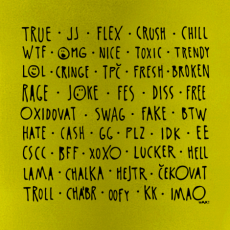 TRUE · JJ · FLEX · CRUSH · CHILL
WTF · OMG · NICE · TOXIC · TRENDY
LOL · CRINGE · TPČ · FRESH · BROKEN
RAGE · JOKE · FES · DISS · FREE
OXIDOVAT · SWAG · FAKE · BTW
HATE · CASH · GG · PLZ · IDK · EE
CSCC · BFF · XOXO · LUCKER · HELL
LAMA · CHALKA · HEJTR · ČEKOVAT
TROLL · CHÁBR · OOFY · KK · IMAO